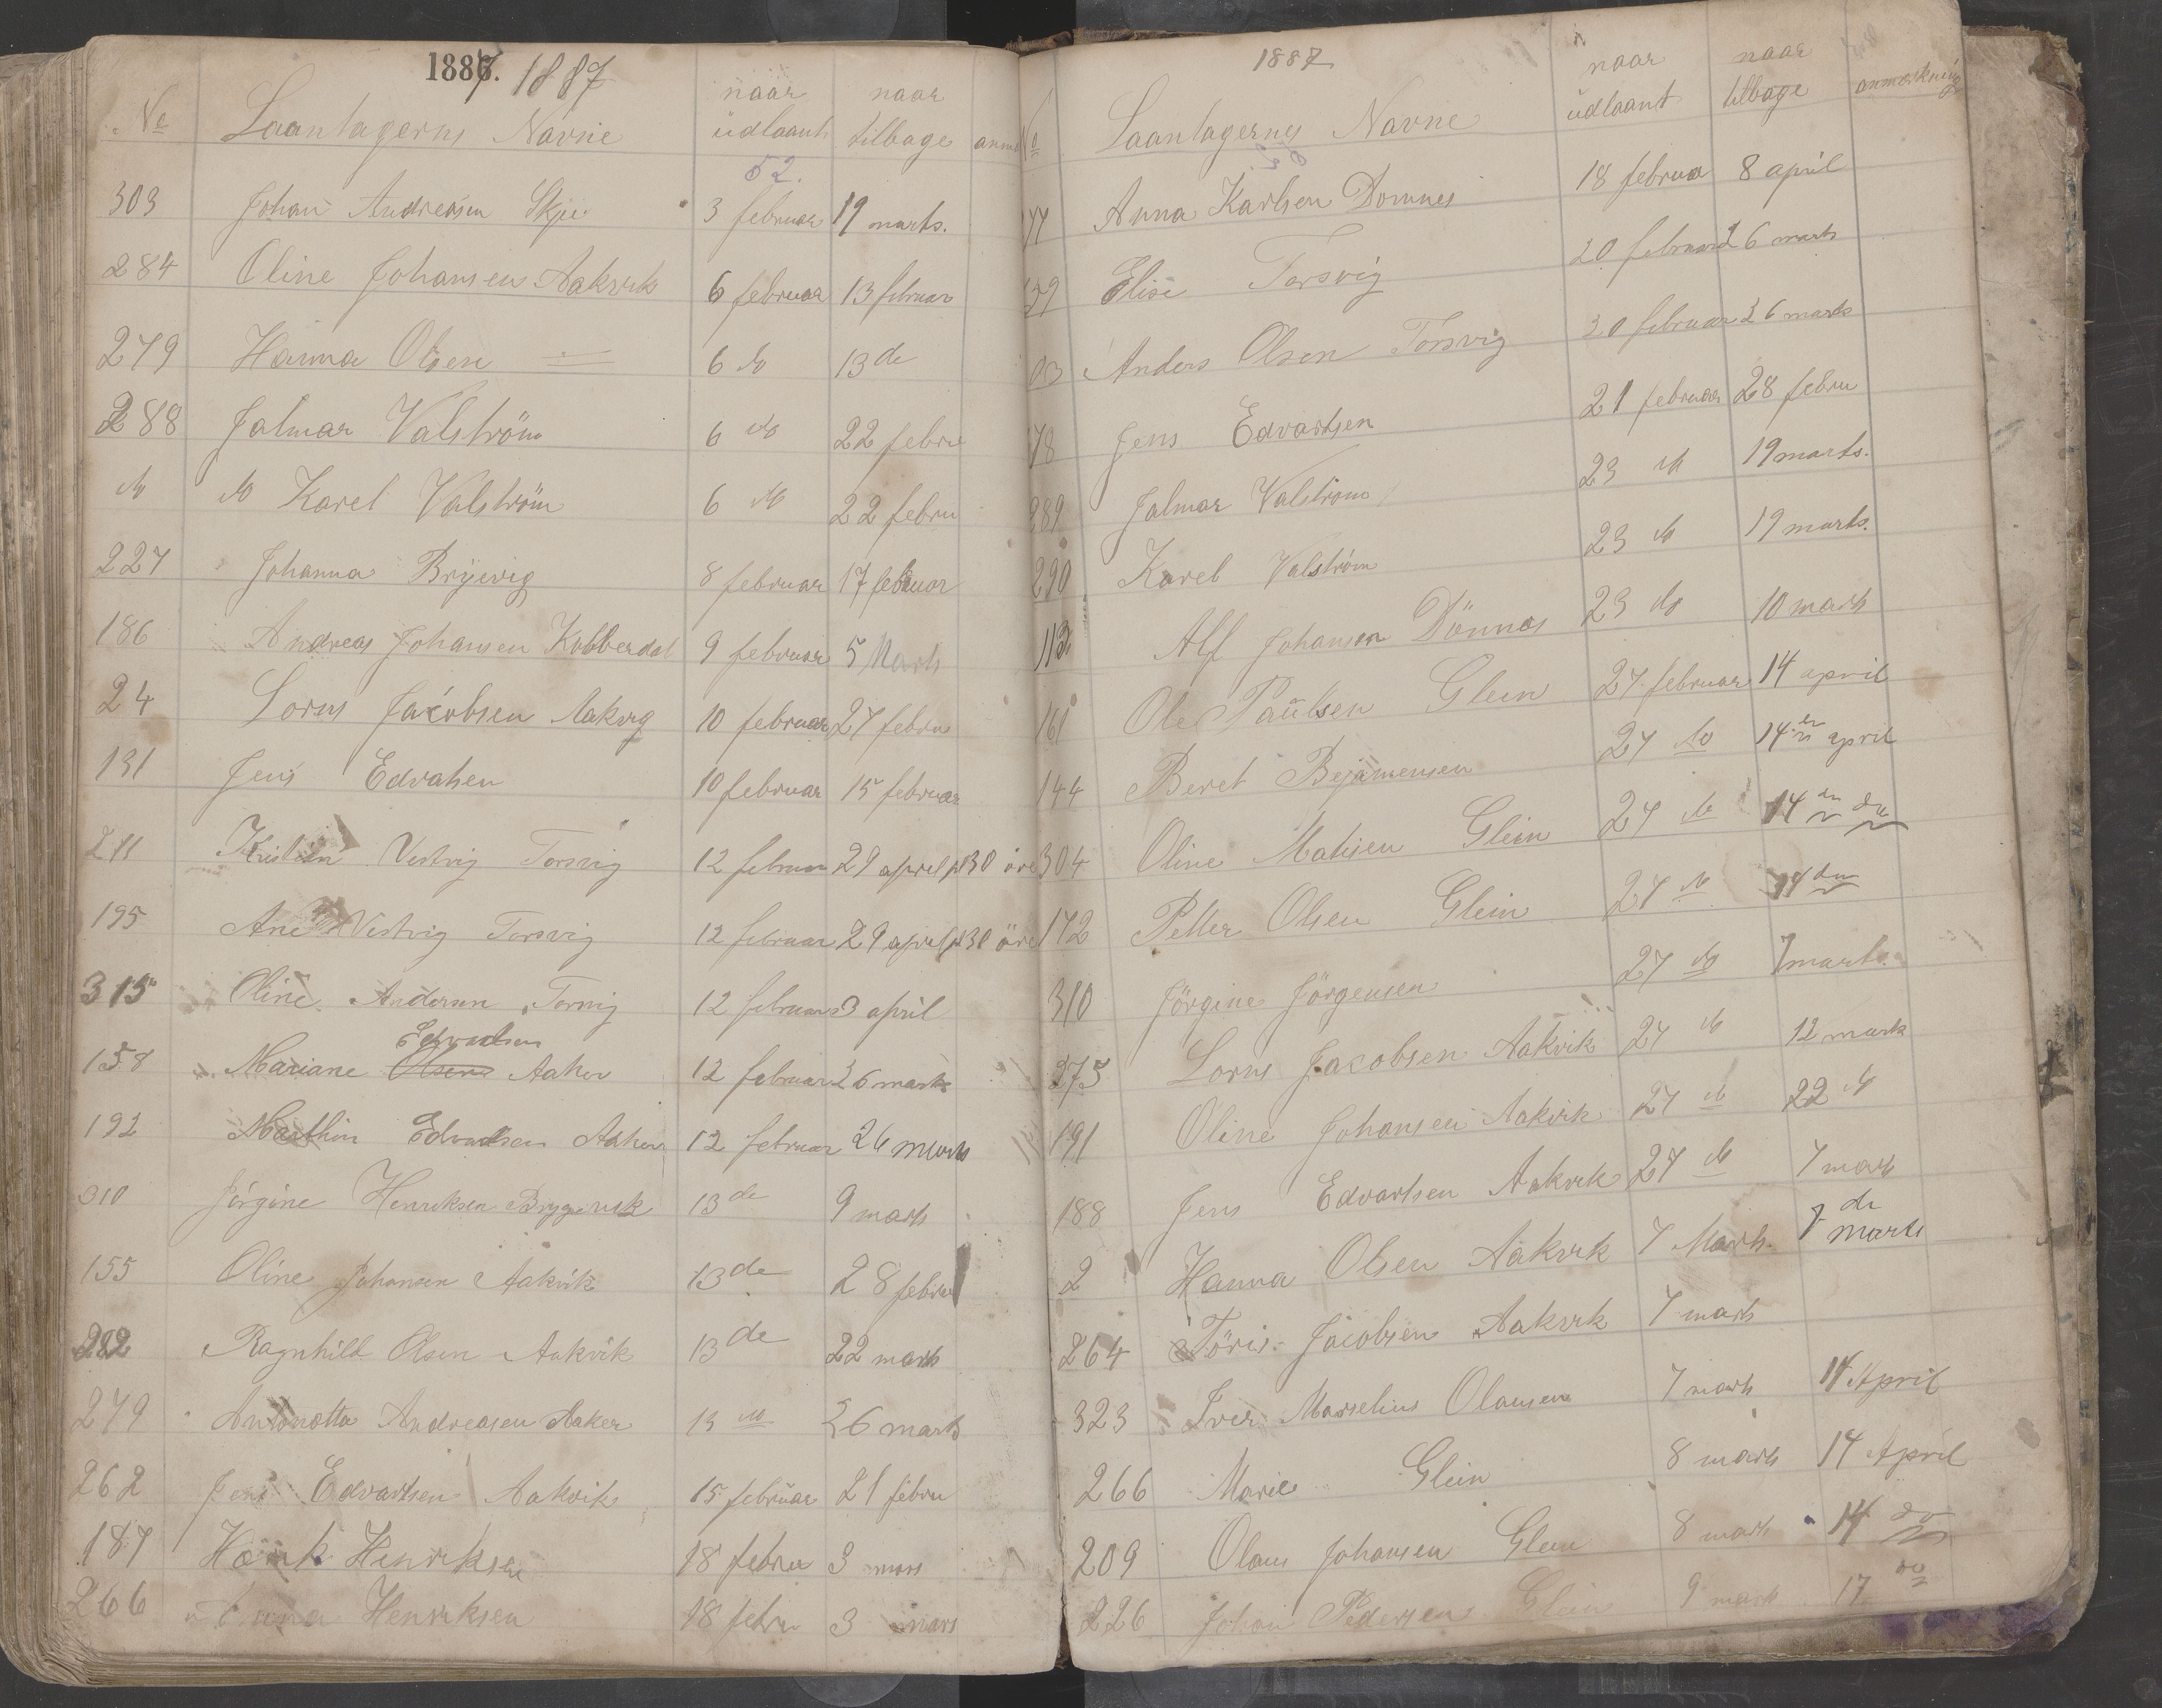 1887. 1887
No Laantagerns Navne naar udlaant naar tilbage anm
52.
303 Johan Andreasen Skjei 3 februar 19 marts.
284 Oline Johansen Aakvik 6 februar 13 februar
279 Hanna Olsen — 6 do 13 de
288 Jalmar Valström 6 do 22 febru
do do Karel Valström 6 do 22 febru
227 Johanna Bryevig 8 februar 17 februar
186 Andreas Johansen Kobberdal 9 februar 5 Marts
24 Lorns Jacobsen Aakvig 10 februar 27 febru
131 Jens Edvatsen 10 februar 15 februar
211 Kristian Vestvig Torsvig 12 februar 29 april 30 öre
195 Ane Vestvig Torsvig 12 februar 29 april 30 öre
315 Oline Andersen Torsvig 12 februar 3 april
Edvardsen
158 Mariane Olsen Aaker 12 februar 26 marts
192 Marthin Edvardsen Aaker 12 februar 26 marts
310 Jörgine Henriksen Brygevik 13 de 9 marts
155 Oline Johansen Aakvik 13 de 28 febru
282 Ragnhild Olsen Aakvik 13 de 22 marts
279 Antonetta Andreasen Aaker 13 do 26 marts
262 Jens Edvartsen Aakvik 15 februar 21 febru
187 Henrik Henriksen 18 febru 3 mars
266 Henriksen 18 febru 3 mars
1887
No Laantagernes Navne naar udlaant naar tilbage anmerkning
77 Anna Karlsen Domnes 18 februa 8 april
39 Elise Torsvig 20 februar 26 marts
03 Anders Olsen Torsvig 20 februar 26 marts
78 Jens Edvartsen 21 februar 28 febru
289 Jalmar Valström 23 do 19 marts.
290 Karel Valström 23 do 19 marts.
113 Alf Johansen Dönnes 23 do 10 marts
161 Ole Paulsen Glein 27 februar 14 april
144 Beret Bejamensen 27 do 14 april
304 Oline Matisen Glein 27 do 14 de
172 Petter Olsen Glein 27 do 14 de
310 Jörgine Jörgensen 27 do 7 marts
275 Lorns Jacobsen Aakvik 27 do 12 marts
191 Oline Johansen Aakvik 27 do 22 do
188 Jens Edvartsen Aakvik 27 do 7 marts
2 Hanna Olsen Aakvik 7 Marts. 7 de marts
264 Töris Jacobsen Aakvik 7 marts
323 Iver Marselius Olausen 7 marts 14 April
266 Marie Glein 8 marts 14 April
209 Olaus Johansen Glein 8 marts 14 do
226 Johan Pedersen Glein 9 marts 17 do